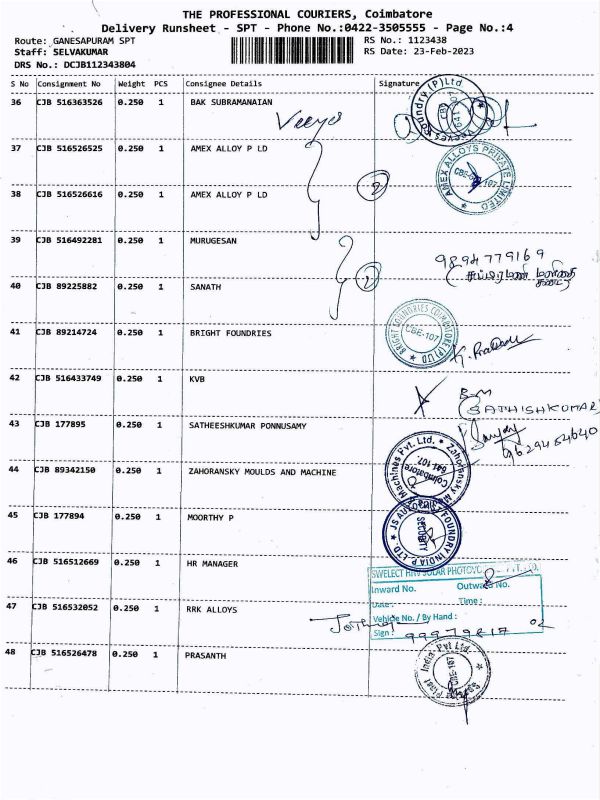 THE PROFESSIONAL COURIERS, Coimbatore
Delivery Runsheet - SPT - Phone No.:0422-3505555 - Page No.:4
Route: GANESAPURAM SPT RS No.: 1123438
Staff: SELVAKUMAR RS Date: 23-Feb-2023
DRS No.: DCJB112343804
S No Consignment No Weight PCS Consignee Details Signature
36 CJB 516363526 0.250 1 BAK SUBRAMANAIAN
37 CJB 516526525 0.250 1 AMEX ALLOY P LD
AMEX ALLOYS PRIVATE LIMITED
38 CJB 516526616 0.250 1 AMEX ALLOY P LD
2
39 CJB 516492281 0.250 1 MURUGESAN
9894779169
2
40 CJB 89225882 0.250 1 SANATH
41 CJB 89214724 0.250 1 BRIGHT FOUNDRIES
BRIGHT FOUNDRIES COIMBATORE (P) LTD
CBE-107
42 CJB 516433749 0.250 1 KVB
B.M
(SATHISHKUMAR)
43 CJB 177895 0.250 1 SATHEESHKUMAR PONNUSAMY
9629464640
44 CJB 89342150 0.250 1 ZAHORANSKY MOULDS AND MACHINE
Machines Pvt. Ltd. Zahoransky
Coimbatore
641 107.
45 CJB 177894 0.250 1 MOORTHY P
FOUNDRY INDIA P LTD.
SECURITY
46 CJB 516512669 0.250 1 HR MANAGER
Inward No. Outward No.
Date: Time:
47 CJB 516532052 0.250 1 RRK ALLOYS
Vehicle No. / By Hand :
Sign :
48 CJB 516526478 0.250 1 PRASANTH
India Pvt Ltd
CBE-107